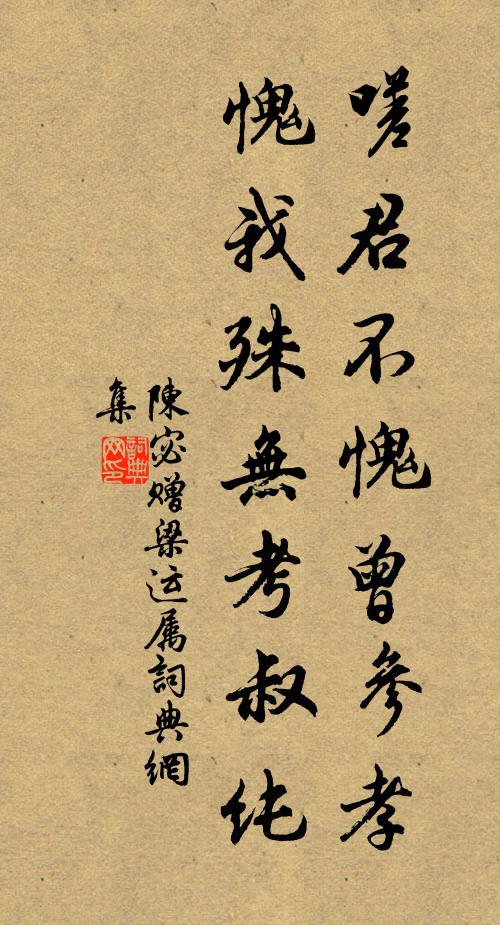 嗟君不愧曾參孝
愧我殊無考叔純
陳宓贈梁运属詞典網
集
詞典網印